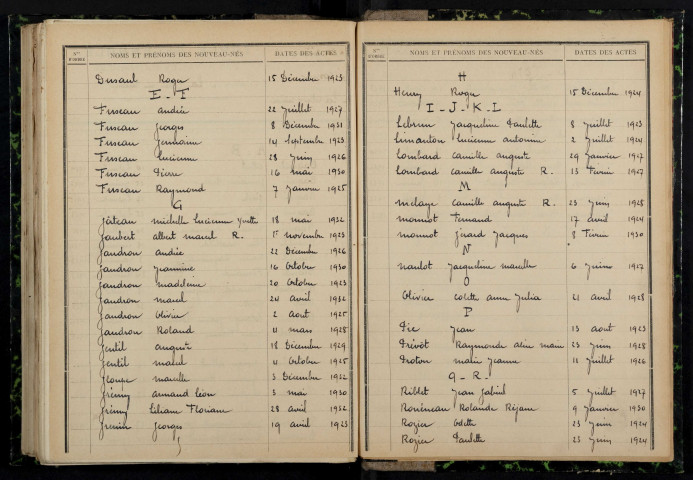 Nos D'ORDRE NOMS ET PRÉNOMS DES NOUVEAU-NÉS DATES DES ACTES
Dusaul Roger 15 Décembre 1923
E - F
Fuseau Andrée 22 Juillet 1927
Fuseau Georges 8 Décembre 1931
Fuseau Germaine 14 Septembre 1923
Fuseau Lucienne 28 Juin 1926
Fuseau Pierre 16 mai 1930
Fuseau Raymond 7 Janvier 1925
G
Gâteau Michelle Lucienne Yvette 18 mai 1932
Gaubert Albert Marcel R. 1er novembre 1923
Gaudron Andrée 22 Décembre 1926
Gaudron Jeannine 16 Octobre 1930
Gaudron Madeleine 20 Octobre 1923
Gaudron Marcel 24 avril 1926
Gaudron Olivier 2 Aout 1925
Gaudron Roland 11 mars 1928
Gentil Auguste 18 Décembre 1929
Gentil Marcel 11 Octobre 1925
Marcelle 3 Décembre 1932
Grémy Armand Léon 3 mai 1930
Grémy Liliane Floriane 28 avril 1932
Georges 19 avril 1923
Nos D'ORDRE NOMS ET PRÉNOMS DES NOUVEAU-NÉS DATES DES ACTES
H
Henry Roger 15 Décembre 1924
I - J - K - L
Lebrun Jacqueline Paulette 8 Juillet 1923
Limanton Lucienne Antonine 2 Juillet 1924
Lombard Camille Auguste 29 Janvier 1927
Lombard Camille Auguste R. 13 Février 1927
M
Camille Auguste R. 23 Juin 1928
Monnot Fernand 17 avril 1924
Monnot Gérard Jacques 8 Février 1930
N
Naulot Jacqueline Marcelle 6 1927
O
Olivier Colette Anne Julia 21 avril 1928
P
Pic Jean 13 Aout 1923
Prévôt Raymonde Aline Marie 23 Juin 1928
Proton Marie Jeanne 11 Juillet 1926
Q - R -
Riblet Jean Gabriel 5 Juillet 1927
Rolande Réjane 9 Janvier 1930
Rozier Odette 23 Juin 1924
Rozier Paulette 23 Juin 1924